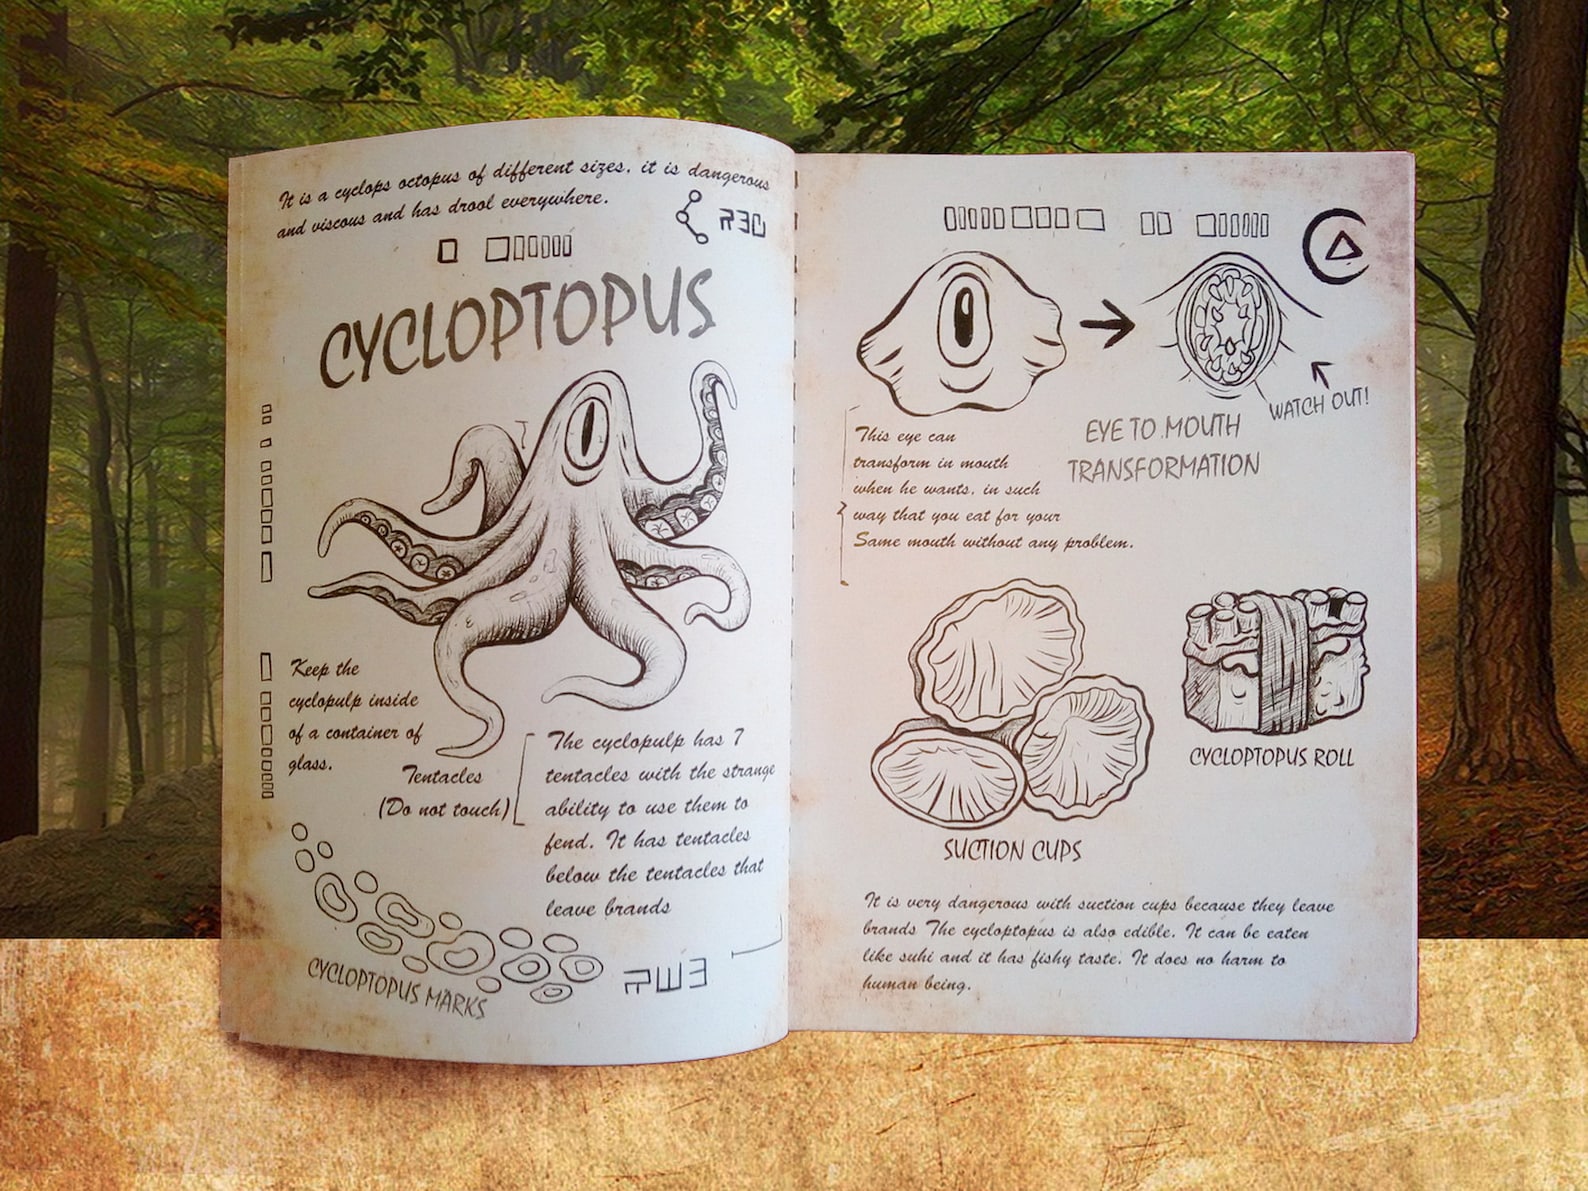 It is a cyclops octopus of different sizes, it is dangerous
and viscous and has drool everywhere.
CYCLOPTOPUS
Keep the
cyclopulp inside
of a container of
glass.
Tentacles
(Do not touch)
The cyclopulp has 7
tentacles with the strange
ability to use them to
fend. It has tentacles
below the tentacles that
leave brands
CYCLOPTOPUS MARKS
WATCH OUT!
EYE TO MOUTH
TRANSFORMATION
This eye can
transform in mouth
when he wants, in such
way that you eat for your
Same mouth without any problem.
CYCLOPTOPUS ROLL
SUCTION CUPS
It is very dangerous with suction cups because they leave
brands The cycloptopus is also edible. It can be eaten
like suhi and it has fishy taste. It does no harm to
human being.